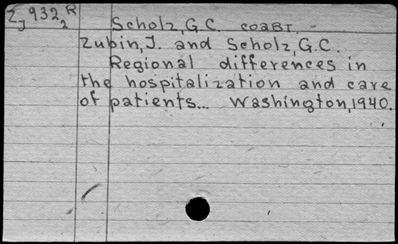 Z, 932 R
J 2
Scholz, G.C. соавт.
Zubin, J. and Scholz, G.C.
Regional differences in
the hospitalization and care
of patients... Washington, 1940.